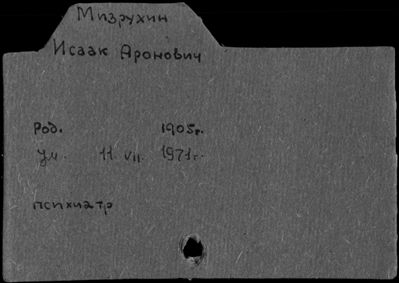 Мизрухин
Исаак Аронович
Род. 1905г.
ум. 11 VII 1971г.
психиатр